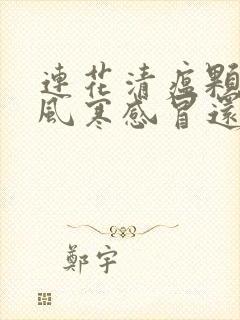 連花清瘟顆
風寒感冒還
鄭宇